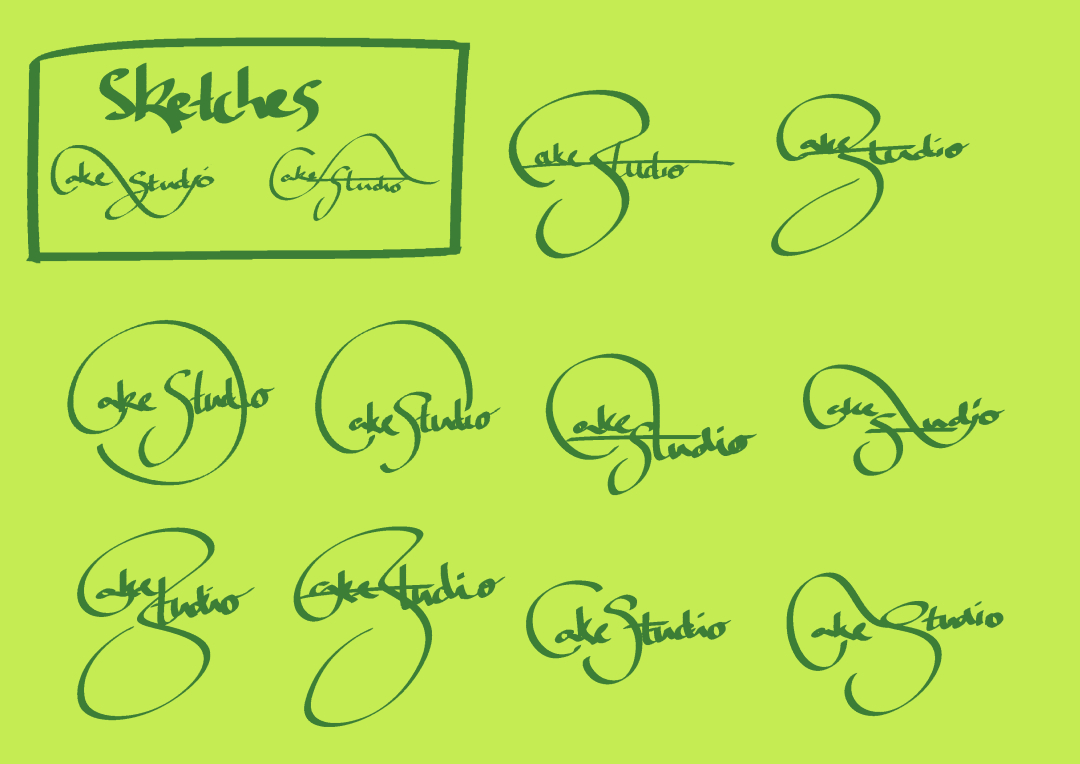 Sketches
Cake Studio Cake Studio
Cake Studio Cake Studio
Cake Studio Cake Studio Cake Studio Cake Studio
Cake Studio Cake Studio Cake Studio Cake Studio